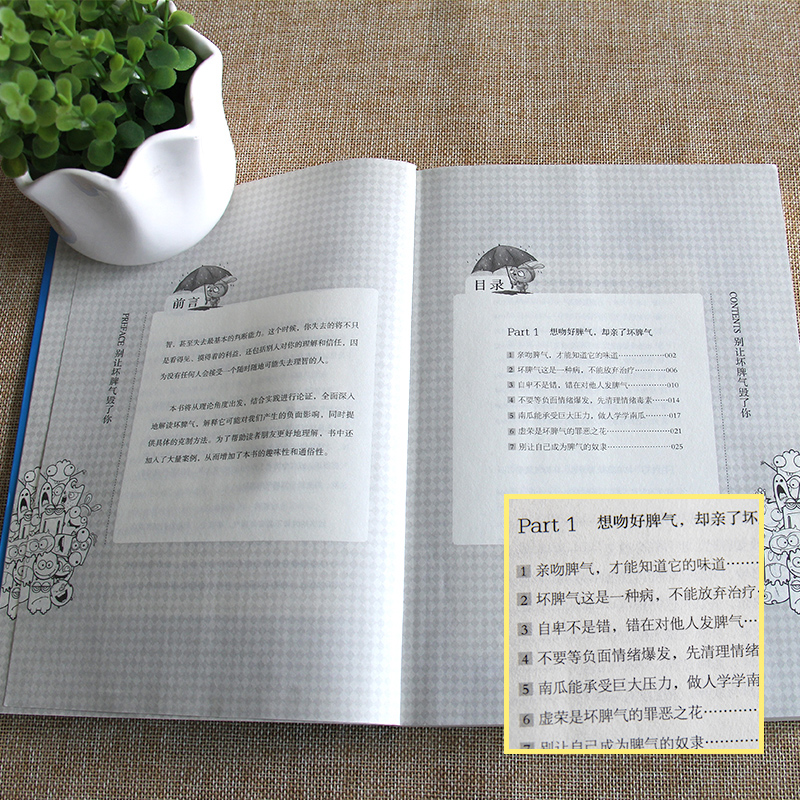 前言
智,甚至失去最基本的判断能力。这个时候,你失去的将不只
是看得见、摸得着的利益,还包括别人对你的理解和信任,因
为没有任何人会接受一个随时随地可能失去理智的人。
本书将从理论角度出发,结合实践进行论证,全面深入
地解读坏脾气,解释它可能对我们产生的负面影响,同时提
供具体的克制方法。为了帮助读者朋友更好地理解,书中还
加入了大量案例,从而增加了本书的趣味性和通俗性。
PREFACE 别让坏脾气毁了你
目录
Part 1 想吻好脾气,却亲了坏脾气
1 亲吻脾气,才能知道它的味道……………002
2 坏脾气这是一种病,不能放弃治疗…………006
3 自卑不是错,错在对他人发脾气……………010
4 不要等负面情绪爆发,先清理情绪毒素……014
5 南瓜能承受巨大压力,做人学学南瓜………017
6 虚荣是坏脾气的罪恶之花……………………021
7 别让自己成为脾气的奴隶……………………025
CONTENTS 别让坏脾气毁了你
Part 1 想吻好脾气,却亲了坏
1 亲吻脾气,才能知道它的味道……
2 坏脾气这是一种病,不能放弃治疗…
3 自卑不是错,错在对他人发脾气…
4 不要等负面情绪爆发,先清理情绪
5 南瓜能承受巨大压力,做人学学南
6 虚荣是坏脾气的罪恶之花………
7 别让自己成为脾气的奴隶………